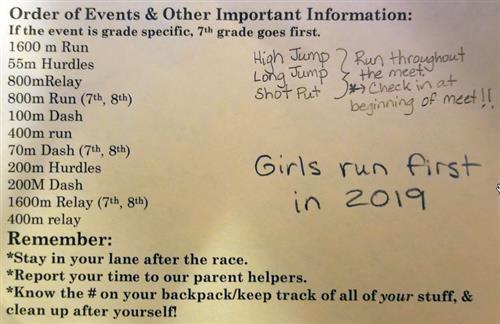 Order of Events & Other Important Information:
If the event is grade specific, 7th grade goes first.
1600 m Run
55m Hurdles
800mRelay
800m Run (7th, 8th)
100m Dash
400m run
70m Dash (7th, 8th)
200m Hurdles
200M Dash
1600m Relay (7th, 8th)
400m relay
High Jump
Long Jump
Shot Put
Run throughout
the meet.
*→ Check in at
beginning of meet!!
Girls run first
in 2019
Remember:
*Stay in your lane after the race.
*Report your time to our parent helpers.
*Know the # on your backpack/keep track of all of your stuff, &
clean up after yourself!